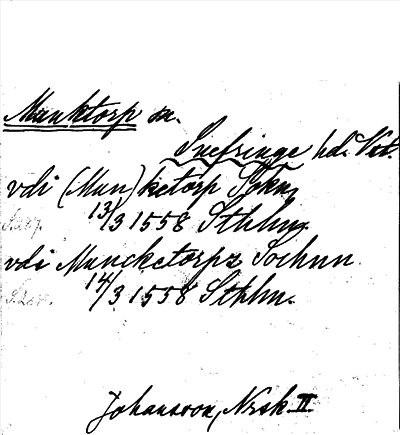 Munktorp sn.
Snefringe hd. Vst.
vdi (Mun)ketorp Sokn
13/3 1558 Sthlm.
vdi Muncketorpz Sochnn
14/3 1558 Sthlm.
Johansson, Nrsk II